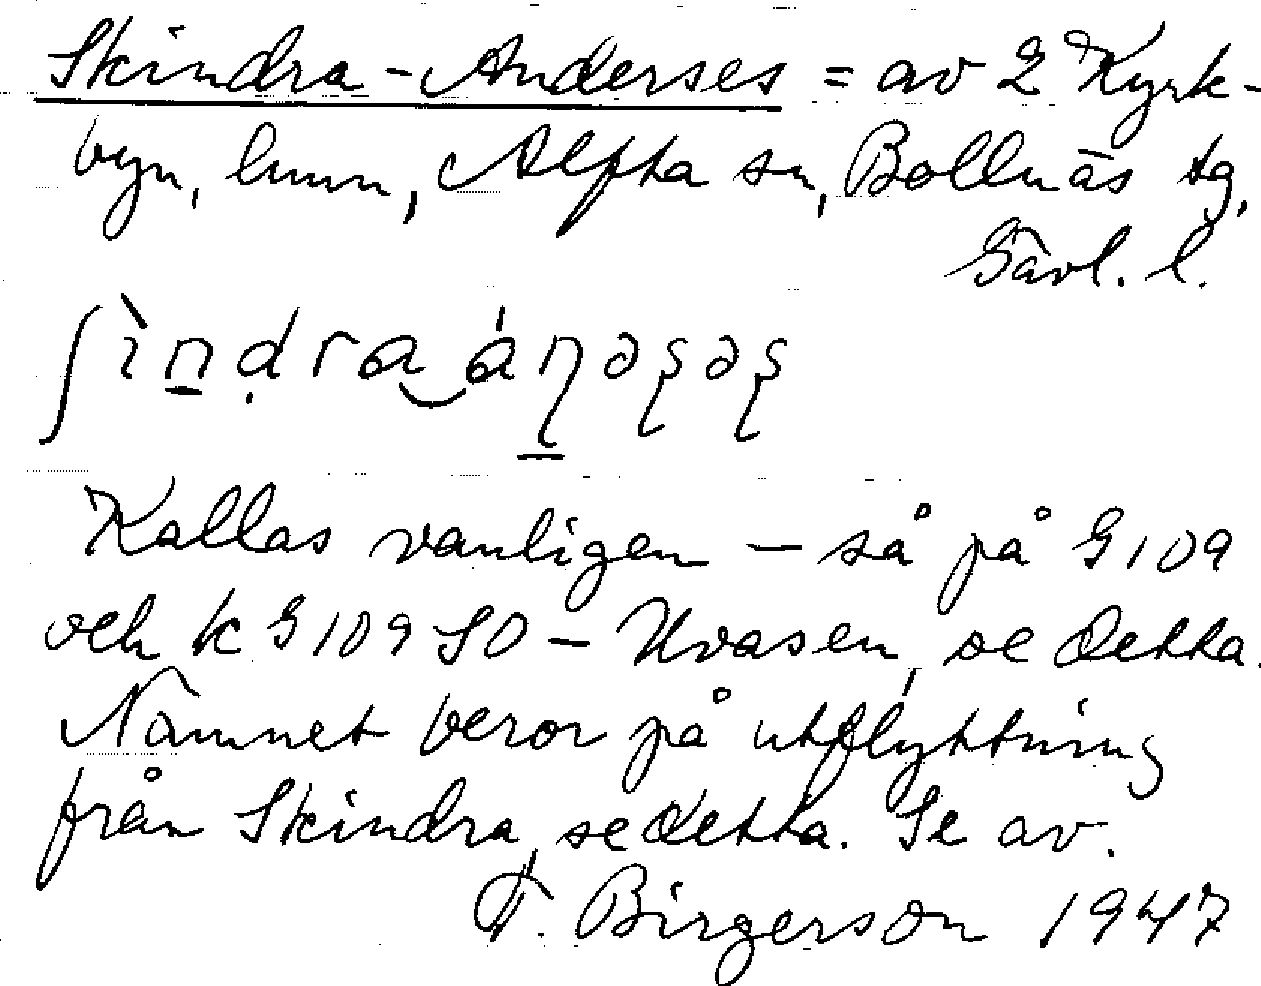 Skindra-Anderses = av 2 Kyrk-
byn, hmn, Alfta sn, Bollnäs tg,
Gävl. l.
ʃìndra‿áɳəʂəʂ
Kallas vanligen – så på G109
och k G109 SO – Uvasen, se detta.
Namnet beror på utflyttning
från Skindra, se detta. Se av.
F. Birgerson 1947